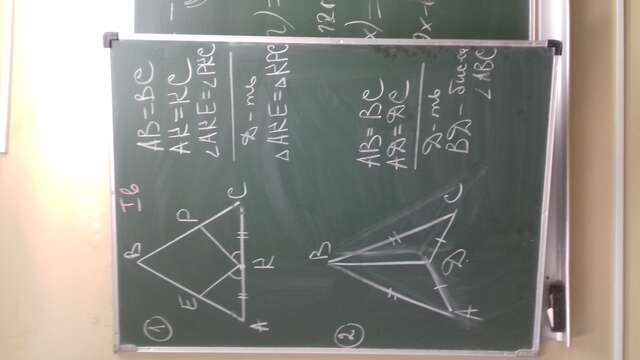 Iв
1
B
E
P
A
K
C
AB=BC
AK=KC
∠AKE=∠PKC
Д-ть
△AKE=△KPC
2
B
A
D
C
AB=BC
AD=DC
Д-ть
BD-бис-са
∠ABC